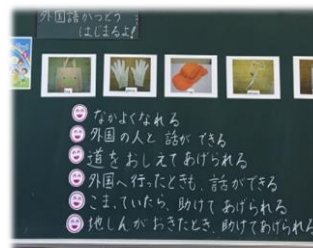 外国語かつどう
はじまるよ!
なかよくなれる
外国の人と 話ができる
道をおしえてあげられる
外国へ行ったときも、話ができる
こまっていたら、助けてあげられる
地しんがおきたとき、助けてあげられる